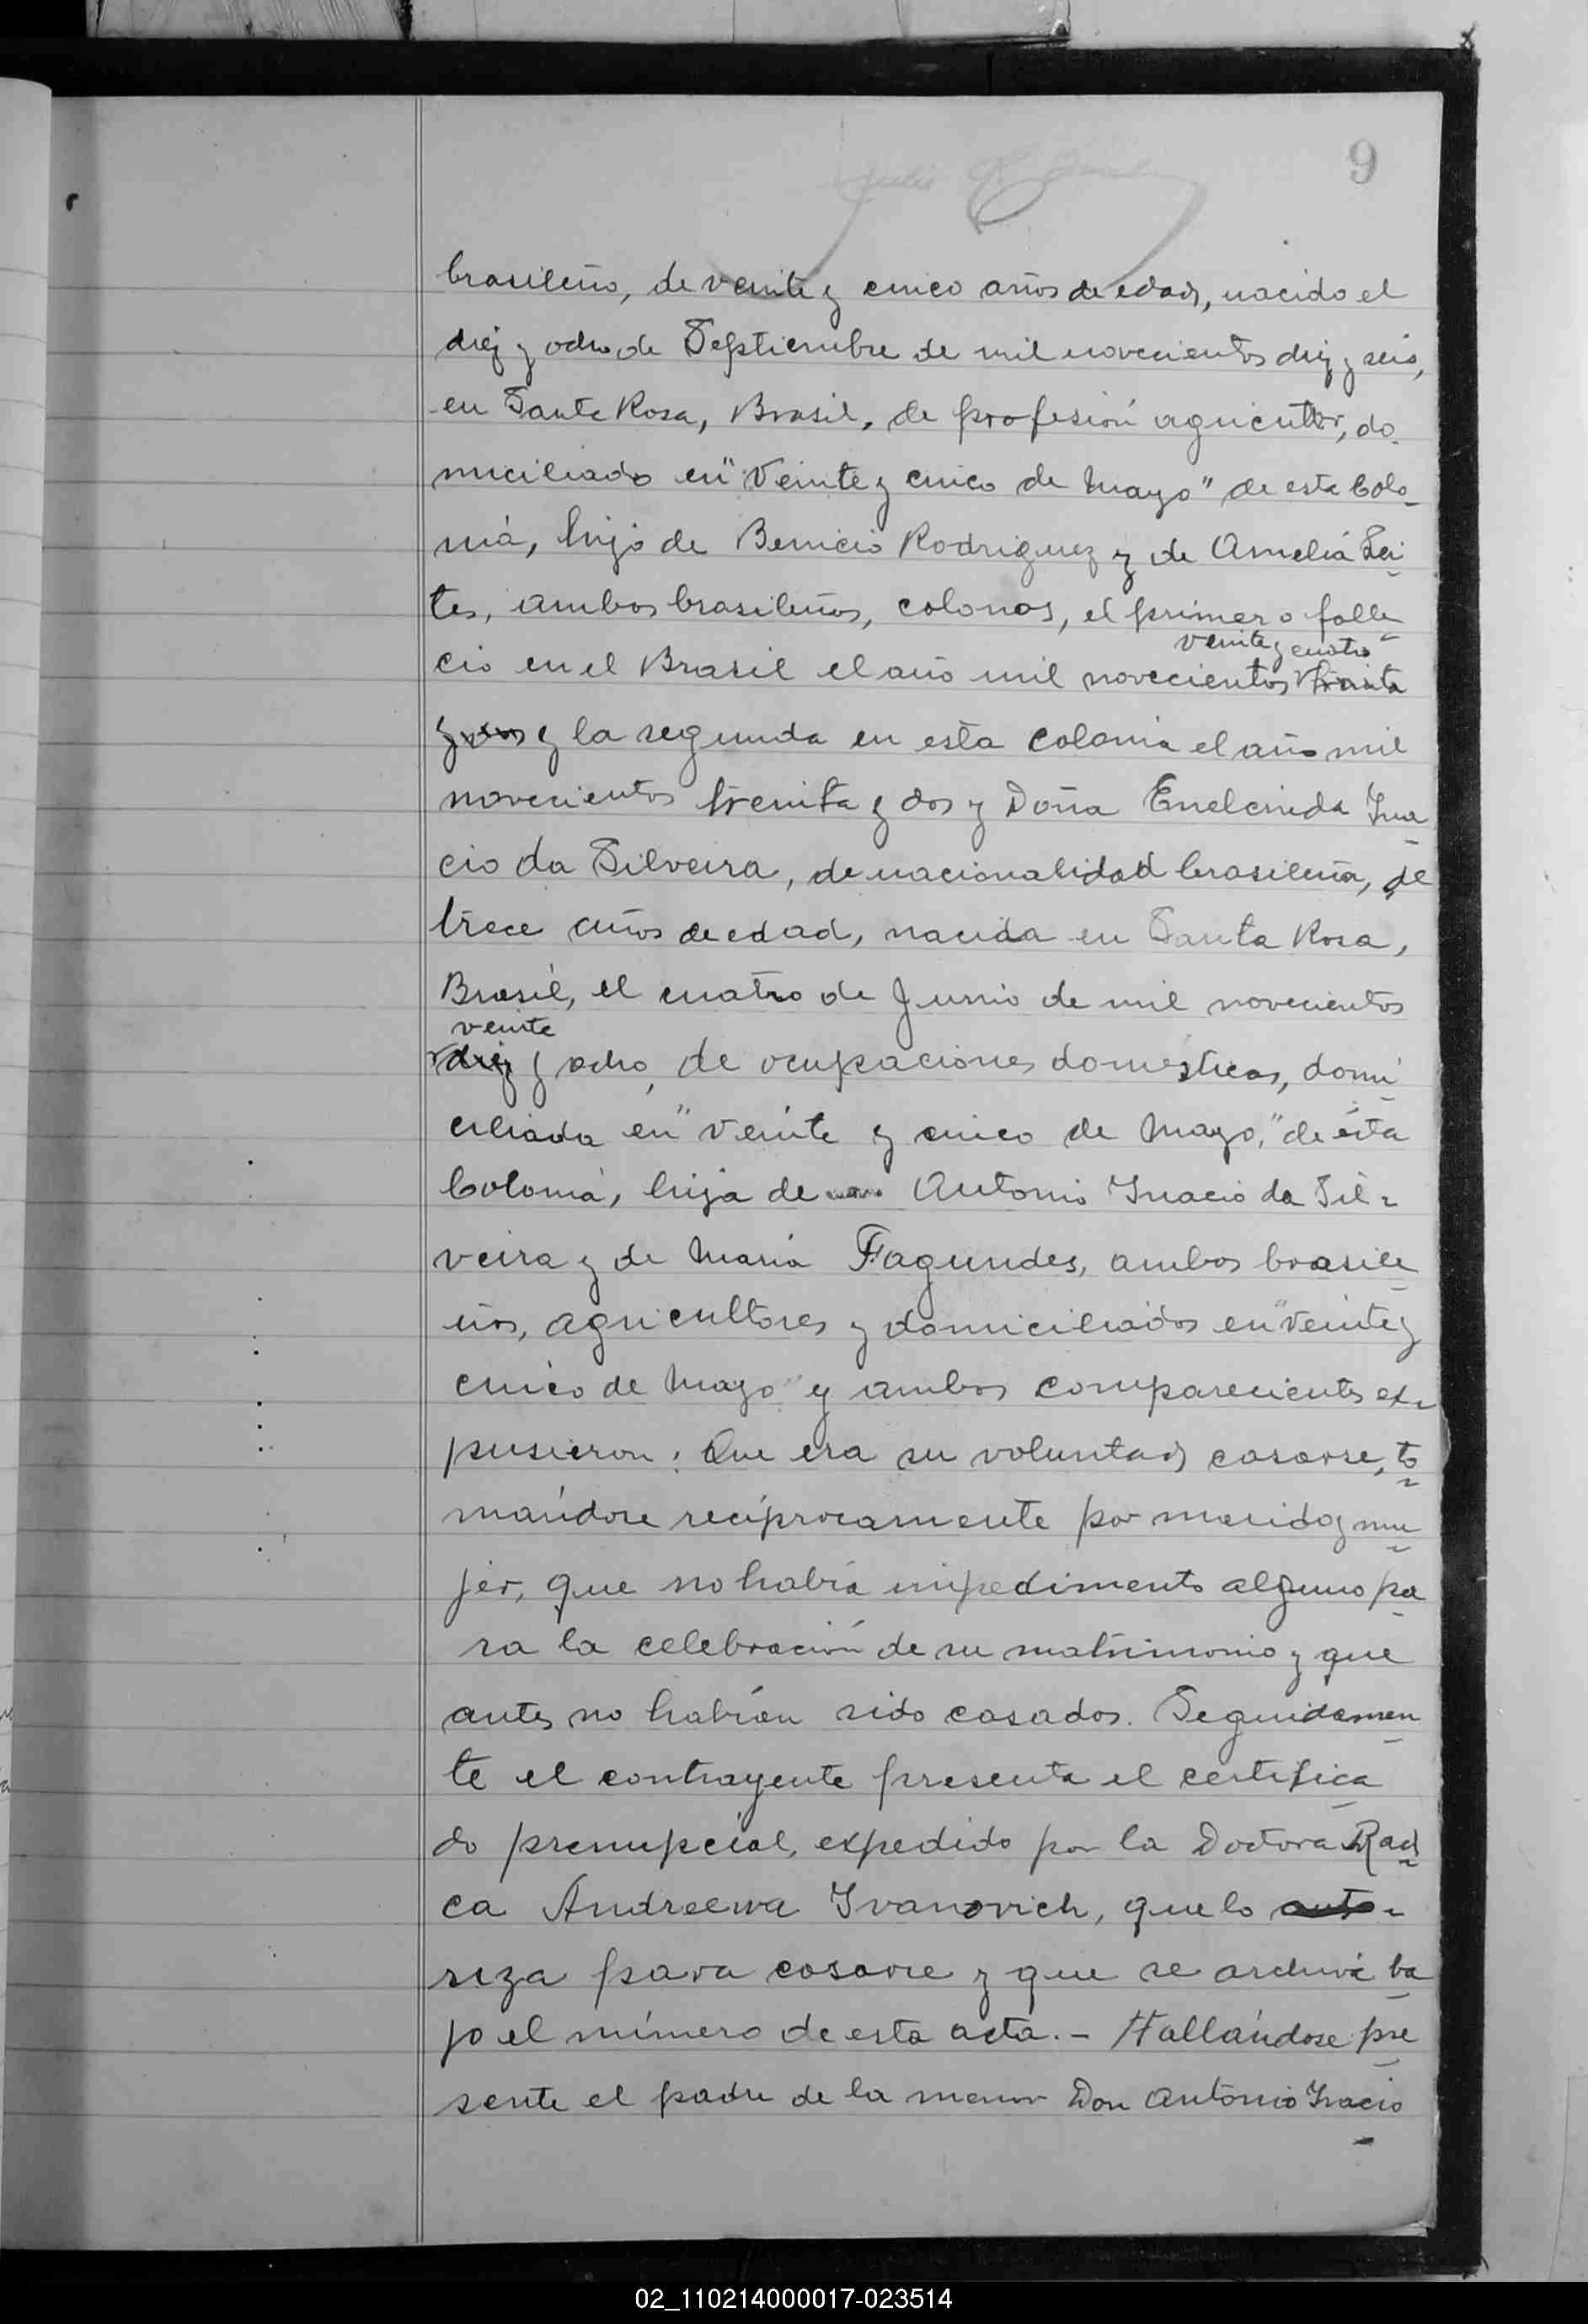 9
brasileño, de veinte y cinco años de edad, nacido el
diez y ocho de Septiembre de mil novecientos diez y seis,
en Santa Rosa, Brasil, de profesión agricultor, do-
miciliado en "Veinte y cinco de Mayo" de esta Colo-
nia, hijo de Benicio Rodriguez y de Amelia Lei-
tes, ambos brasileños, colonos, el primero falle-
veinte y cuatro
ció en el Brasil el año mil novecientos treinta
y dos y la segunda en esta colonia el año mil
novecientos treinta y dos y Doña Enelcinda Ina-
cio da Silveira, de nacionalidad brasileña, de
trece años de edad, nacida en Santa Rosa,
Brasil, el cuatro de Junio de mil novecientos
veinte
diez y ocho, de ocupaciones domésticas, domi-
ciliada en "Veinte y cinco de Mayo," de esta
Colonia, hija de Antonio Inacio da Sil-
veira y de Maria Fagundes, ambos brasile-
ños, agricultores y domiciliados en "Veinte y
cinco de Mayo" y ambos comparecientes ex-
pusieron: Que era su voluntad casarse, to-
mándose recíprocamente por marido y mu-
jer, que no había impedimento alguno pa-
ra la celebración de su matrimonio y que
antes no habían sido casados. Seguidamen-
te el contrayente presenta el certifica-
do prenupcial, expedido por la Doctora Rad-
ca Andreewa Ivanovich, que lo auto-
riza para casarse y que se archiva ba-
jo el número de esta acta.- Hallándose pre-
sente el padre de la menor Don Antonio Inacio
02_110214000017-023514